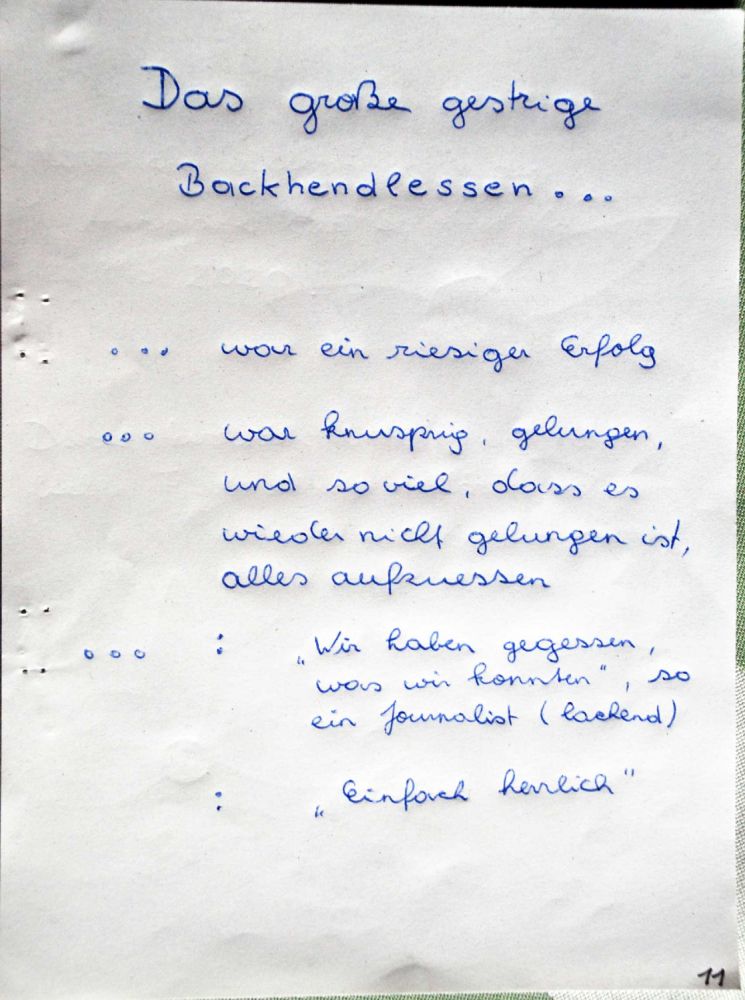 Das große gestrige
Backhendlessen...
... war ein riesiger Erfolg
... war knusprig, gelungen,
und so viel, dass es
wieder nicht gelungen ist,
alles aufzuessen
... : „Wir haben gegessen,
was wir konnten“, so
ein Journalist (lachend)
: „Einfach herrlich“
11